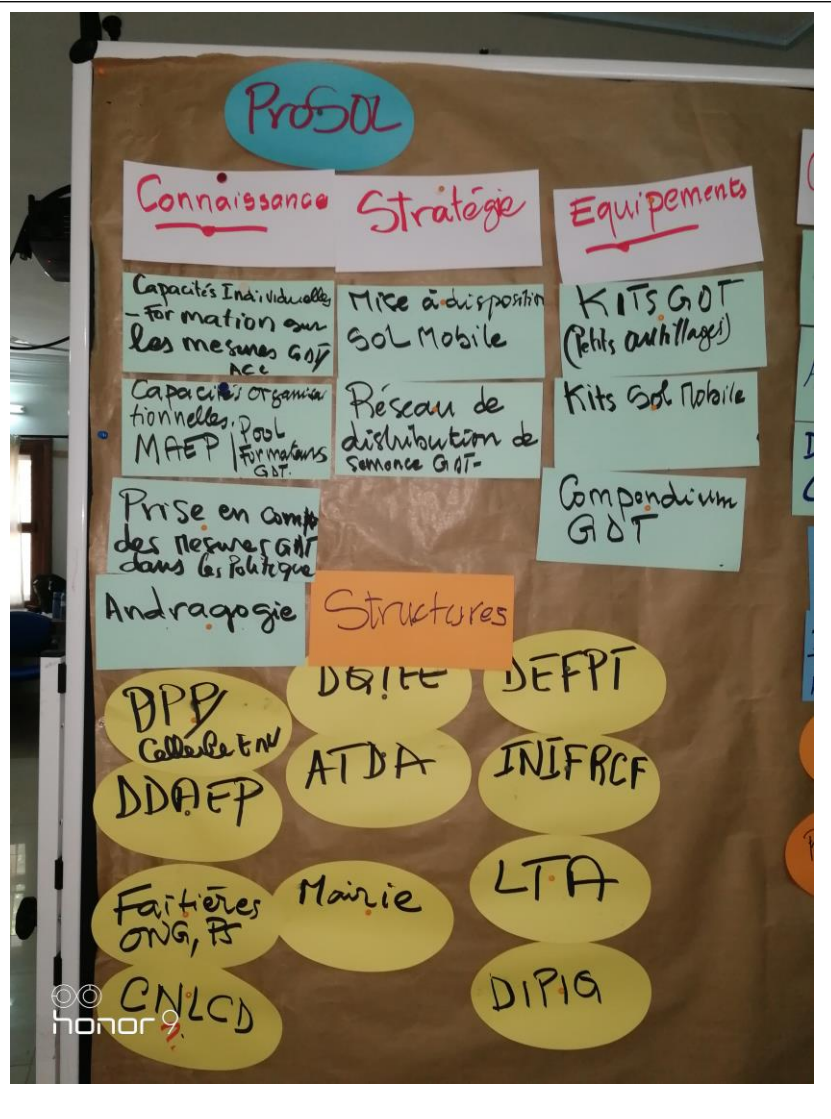 ProSOL
Connaissance
Stratégie
Equipements
Capacités Individuelles
- Formation sur
les mesures GDT
ACC
Capacités organisa
tionnelles.
MAEP | Pool
Formateurs
GDT.
Prise en comp
des mesures GDT
dans les Politique
Andragogie
Mice à disposition
SOL Mobile
Réseau de
distribution de
semence GDT-
KITS GDT
(Petits outillages)
Kits Sol Mobile
Compendium
GDT
Structures
DPP/
Cellule Env
DDAEP
Faitières
ONG, PS
CNLCD
?
ATDA
Mairie
DEFPT
INIFRCF
LTA
DIPIG
honor 9